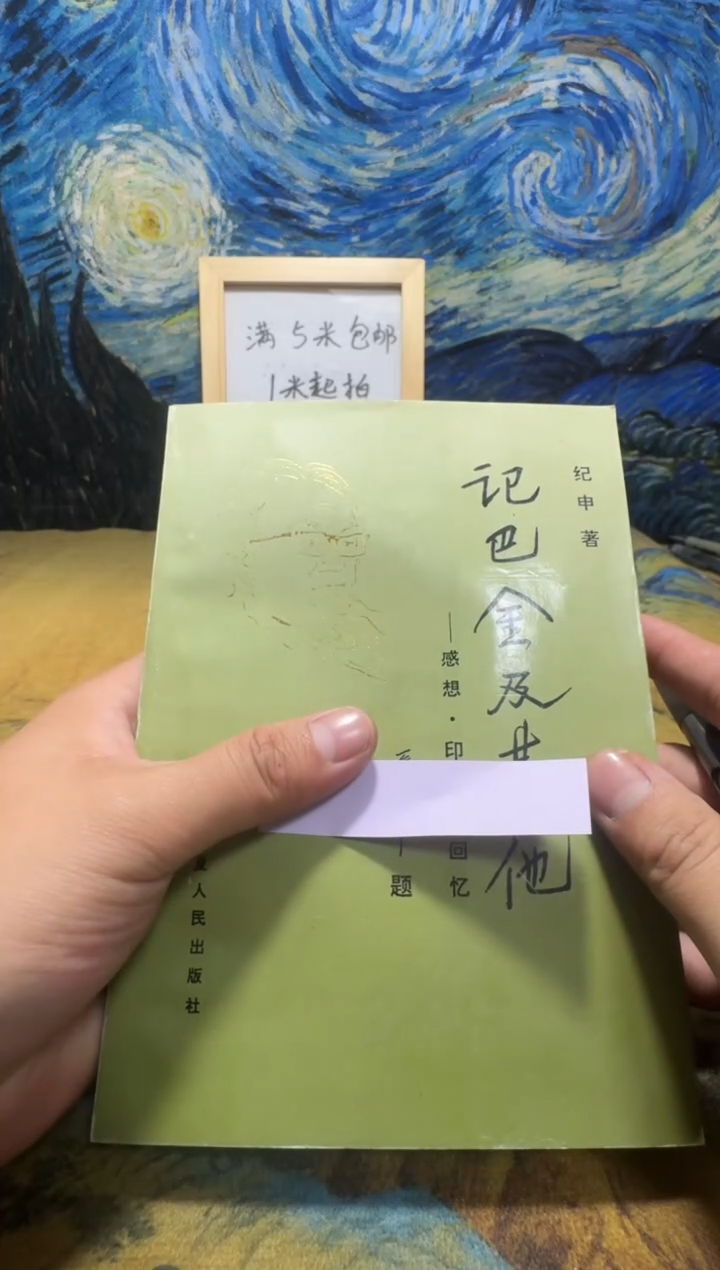 满5米包邮
1米起拍
纪申 著
记巴金及其他
——感想·印 回忆
题
人民出版社